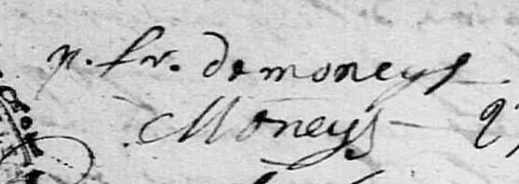 p. fr. demoneys
Moneys — 2